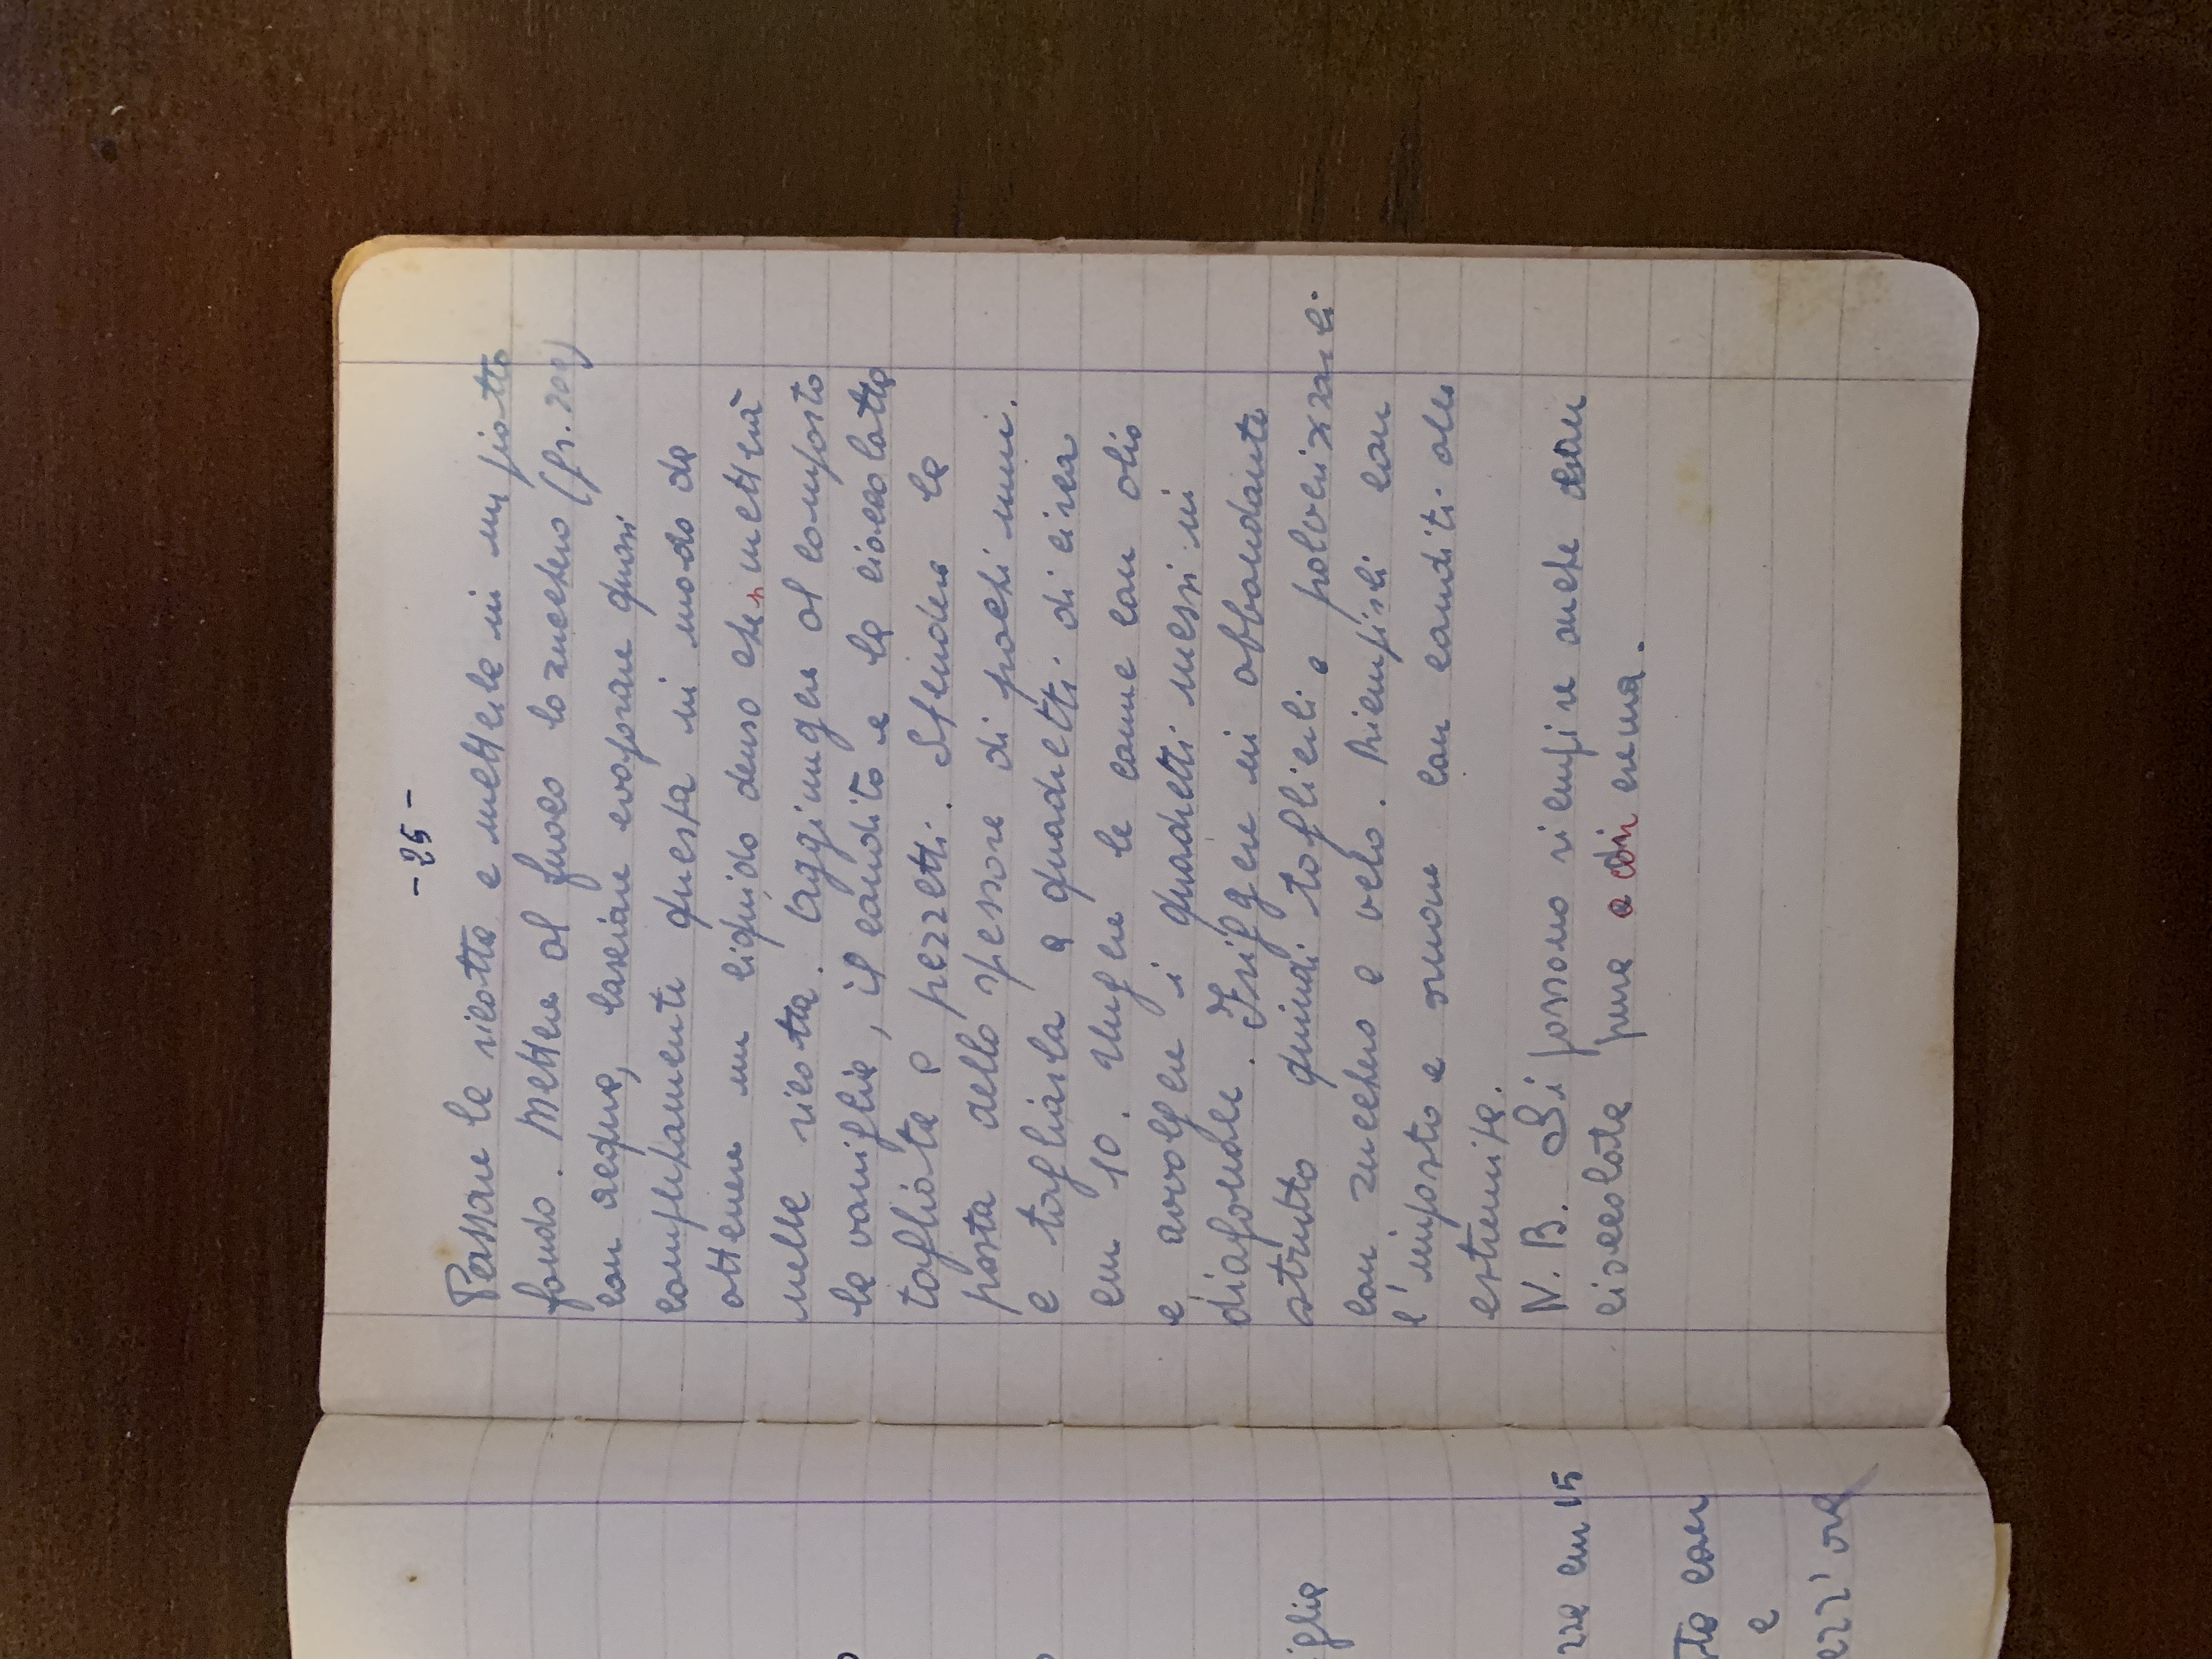 - 25 -
Passare la ricotta e metterla in un piatto
fondo. Mettere al fuoco lo zucchero (gr. 200)
con acqua, lasciare evaporare quasi
completamente questa in modo da
ottenere un liquido denso che si metterà
nella ricotta. Aggiungere al composto
la vaniglia, il candito e la cioccolatta
tagliata a pezzetti. Stendere la
pasta dello spessore di pochi mm.
e tagliarla a quadretti di circa
cm 10. Ungere le canne con olio
e avvolgere i quadretti messi in
diagonale. Friggere in abbondante
strutto quindi toglierli e polverizzarli
con zucchero a velo. Riempirli con
l'imposto e ornare con canditi alle
estremità.
N. B. Si possono riempire anche con
cioccolata pura o con crema.
iglia
zza cm 15
sta con
e
ezz'ora